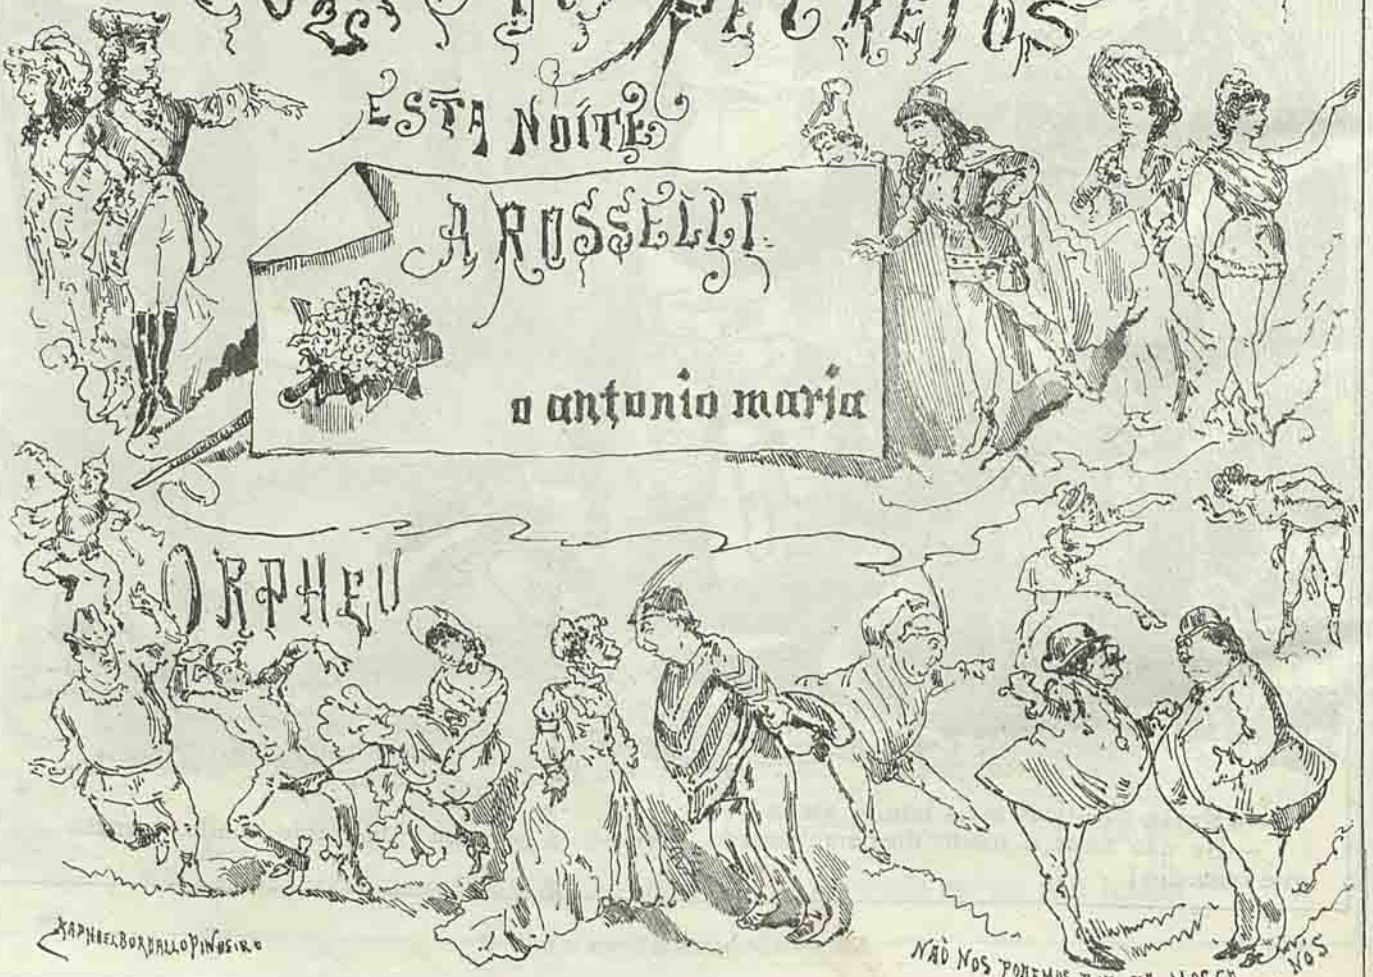 ESTA NOITE
A ROSSELLI
o antonio maria
ORPHEU
RAPHAEL BORDALLO PINHEIRO
NAÕ NOS PODEMOS
NÓS